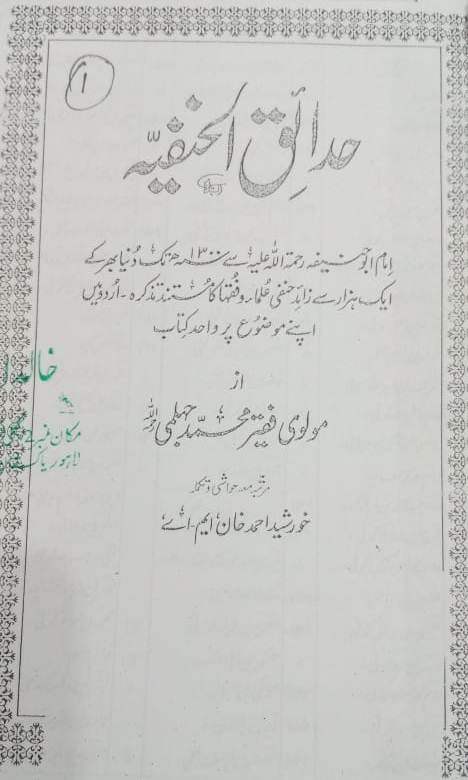 ۱
حدائق الحنفیہ
امام ابو حنیفہ رحمۃ اللہ علیہ سے ۱۳۰۰ھ تک دنیا بھر کے
ایک ہزار سے زائد حنفی علماء و فقہا کا مستند تذکرہ - اردو میں
اپنے موضوع پر واحد کتاب
از
مولوی فقیر محمد جہلمی رحمہ اللہ
مرتبہ معہ حواشی و تکملہ
خورشید احمد خان ایم - اے
مکان نمبر
لاہور پاکستان